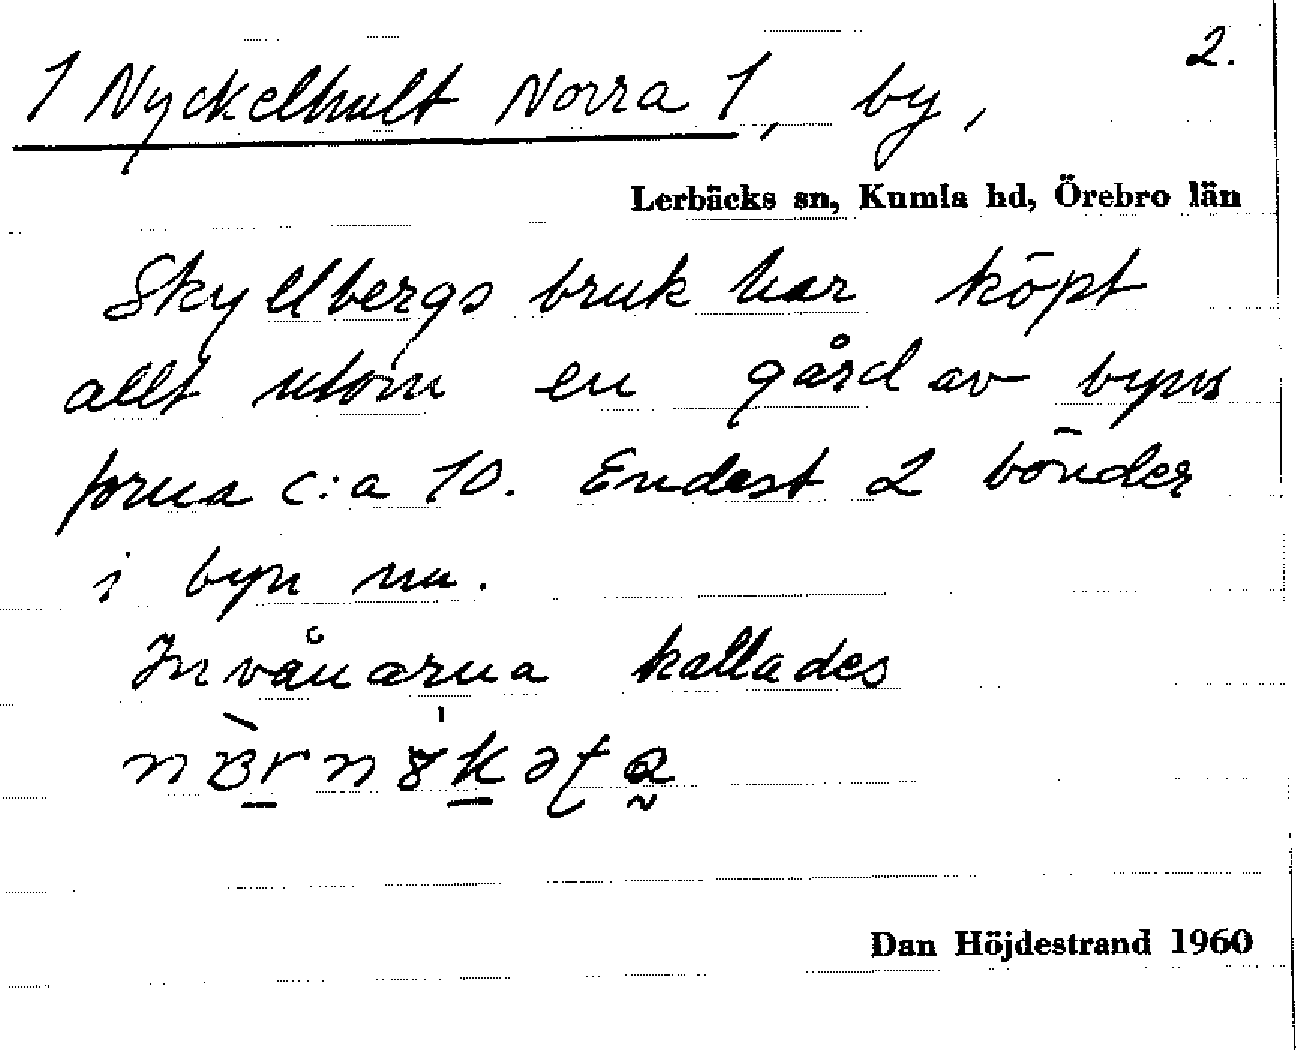 2.
1 Nyckelhult Norra 1, by,
Lerbäcks sn, Kumla hd, Örebro län
Skyllbergs bruk har köpt
allt utom en gård av byns
forna c:a 10. Endast 2 bönder
i byn nu.
Invånarna kallades
Dan Höjdestrand 1960